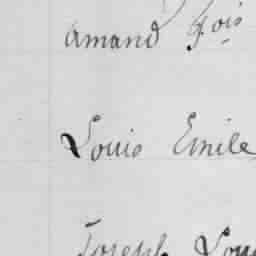 Amand fçois
Louis Emile
Joseph Lou